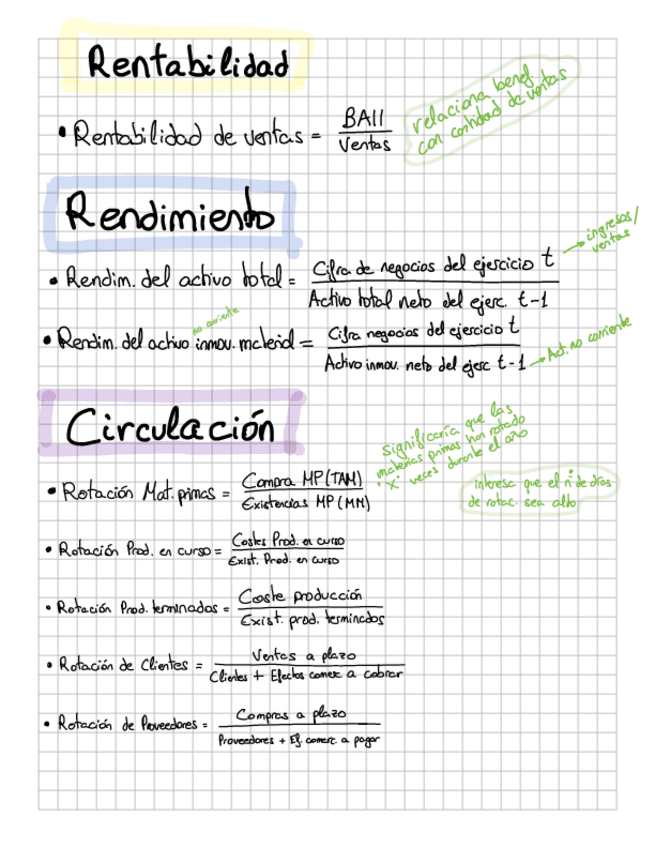 Rentabilidad
• Rentabilidad de ventas = BAII / Ventas
relaciona benef
con cantidad de ventas
Rendimiento
• Rendim. del activo total = Cifra de negocios del ejercicio t / Activo total neto del ejerc. t-1
→ ingresos/
ventas
no corriente
• Rendim. del activo inmov. material = Cifra negocios del ejercicio t / Activo inmov. neto del ejerc t-1
→ Act. no corriente
Circulación
significaría que las
materias primas han rotado
"X" veces durante el año
• Rotación Mat. primas = Compra MP (TAM) / Existencias MP (MM)
interesa que el nº de días
de rotac. sea alto
• Rotación Prod. en curso = Costes Prod. en curso / Exist. Prod. en curso
• Rotación Prod. terminados = Coste producción / Exist. prod. terminados
• Rotación de Clientes = Ventas a plazo / Clientes + Efectos comer. a cobrar
• Rotación de Proveedores = Compras a plazo / Proveedores + Ef. comerc. a pagar